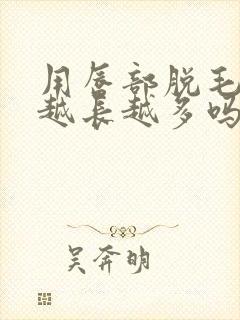 用唇部脱毛
越长越多吗
吴奔明